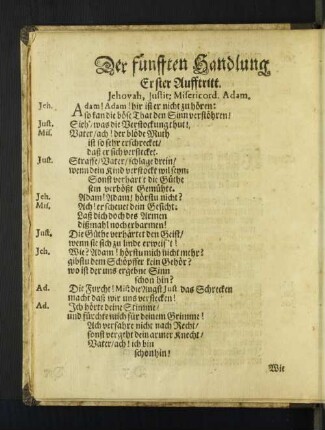 Der funfften Handlung
Erster Aufftritt.
Jehovah, Justit; Misericord. Adam.
Jeh. Adam! Adam! hir ist er nicht zu hören:
so kan die böse That den Sinn verstöhren/
Just. Sieh' was die Verstockung thutt,
Mis. Vater/ach! der blöde Muth
ist so sehr erschrecket/
daß er sich verstecket.
Just. Straffe/Vater/schlage drein/
wenn dein Kind verstockt wil seyn:
Sonst verhärt't die Gütte
sein verbößt Gemühte.
Jeh. Adam! Adam! hörstu nicht?
Mis. Ach! er scheuet dein Gesicht.
Laß dich doch des Armen
dißmahl noch erbarmen!
Just. Die Güthe verhärtet den Geist/
wenn sie sich zu linde erweis't!
Jeh. Wie? Adam! hörstu mich nicht mehr?
gibstu dem Schöpffer kein Gehör?
wo ist der uns ergebne Sinn
schon hin?
Ad. Die Furcht! Mis. die Angst Just. das Schrecken
macht daß wir uns verstecken!
Ad. Ich hörte deine Stimme/
und fürchte mich für deinem Grimme!
Ach verfahre nicht nach Recht/
sonst vergeht dein armer Knecht/
Vater/ach! ich bin
schon hin!
Wie